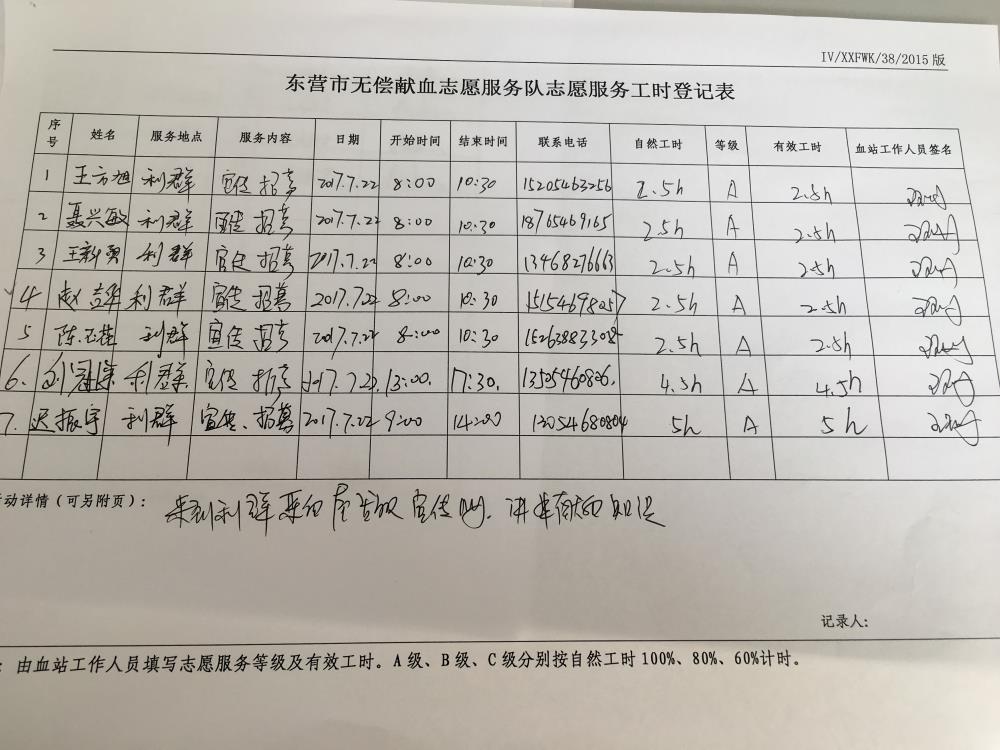 IV/XXFWK/38/2015版
东营市无偿献血志愿服务队志愿服务工时登记表
序号 姓名 服务地点 服务内容 日期 开始时间 结束时间 联系电话 自然工时 等级 有效工时 血站工作人员签名
1 王方旭 利群 宣传招募 2017.7.22 8:00 10:30 15205463256 2.5h A 2.5h
2 聂兴敏 利群 宣传招募 2017.7.22 8:00 10:30 18765469165 2.5h A 2.5h
3 王新勇 利群 宣传招募 2017.7.22 8:00 10:30 13468276663 2.5h A 2.5h
4 赵吉华 利群 宣传招募 2017.7.22 8:00 10:30 15154698057 2.5h A 2.5h
5 陈玉桂 利群 宣传招募 2017.7.22 8:00 10:30 15263883308 2.5h A 2.5h
6. 利群 宣传招募 2017.7.22. 13:00. 17:30. 13525460826. 4.5h A 4.5h
7. 迟振宇 利群 宣传、招募 2017.7.22 9:00 14:00 13054680804 5h A 5h
动详情(可另附页): 来到利群 宣传 讲 知识
记录人:
: 由血站工作人员填写志愿服务等级及有效工时。A级、B级、C级分别按自然工时100%、80%、60%计时。